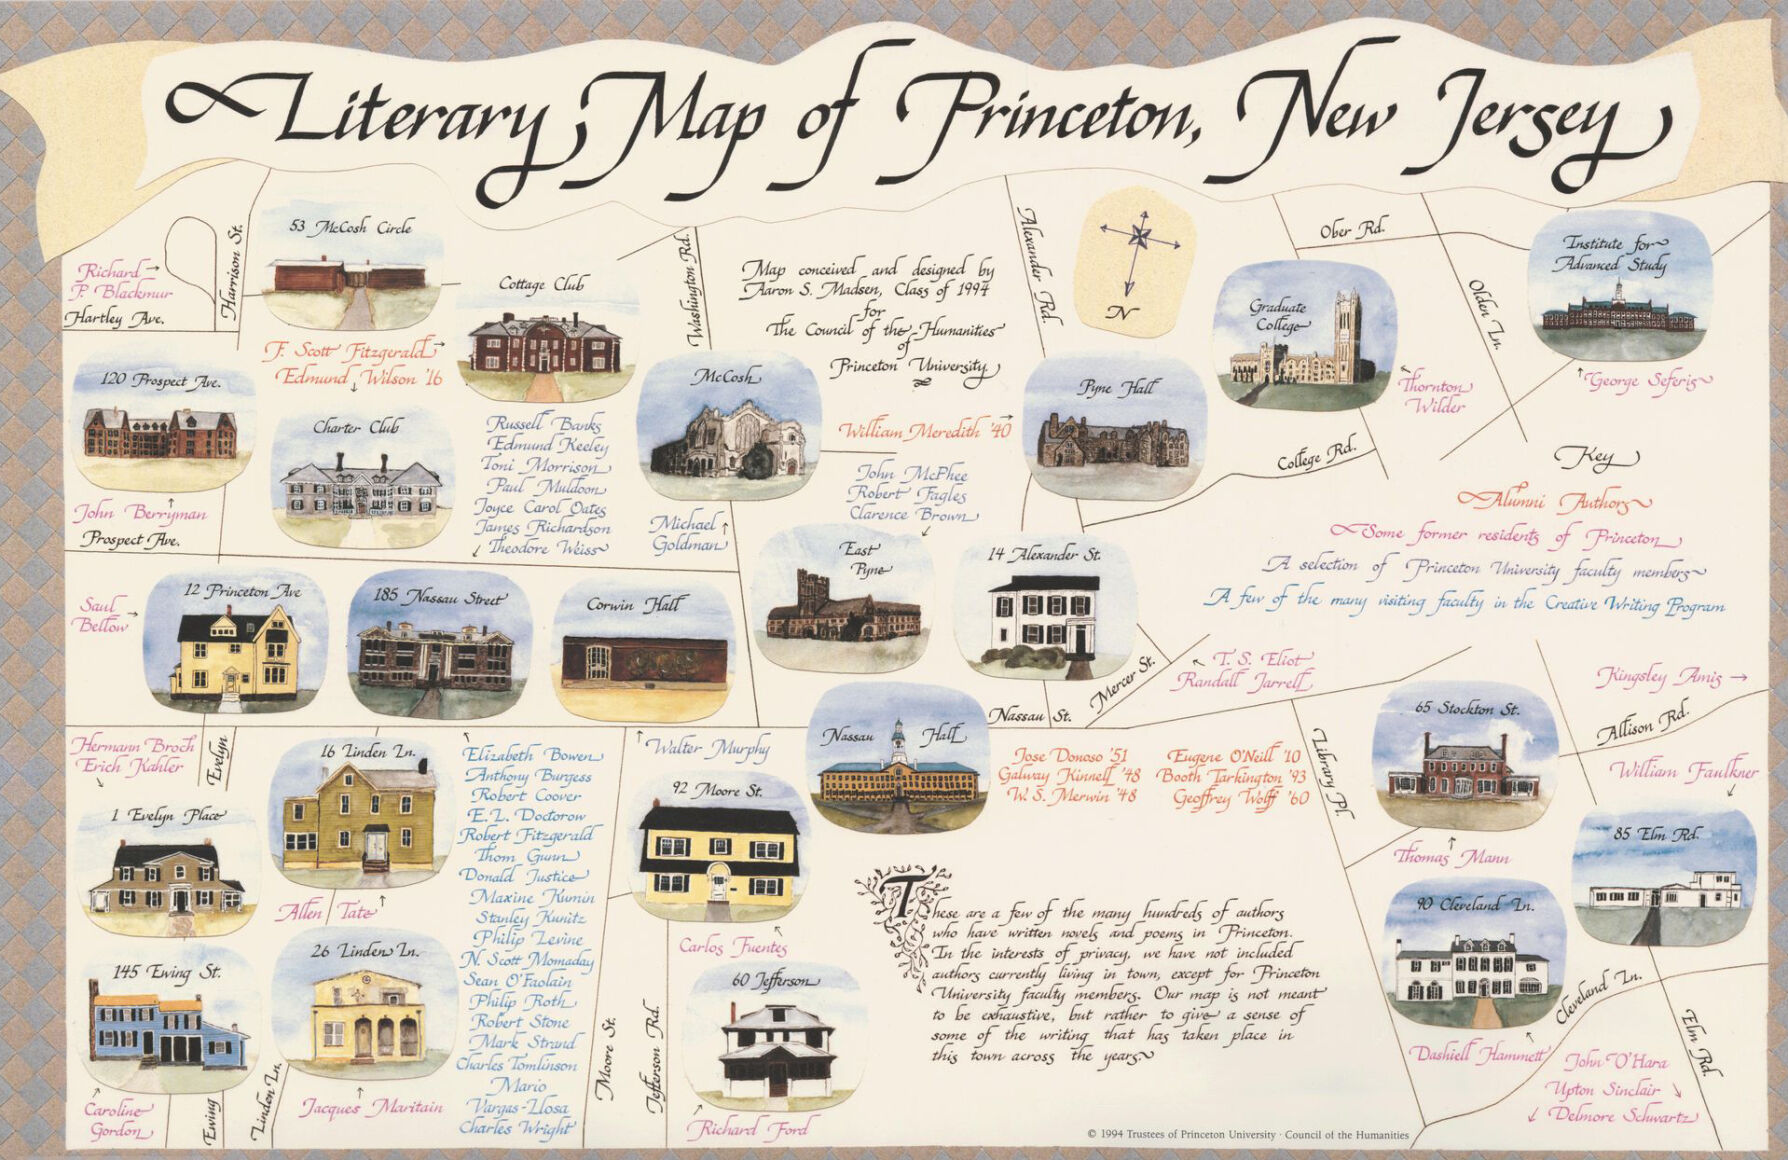 Literary Map of Princeton, New Jersey
53 McCosh Circle
Harrison St.
Richard
P. Blackmur
Hartley Ave.
Cottage Club
Washington Rd.
Map conceived and designed by
Aaron S. Madsen, Class of 1994
for
The Council of the Humanities
of
Princeton University
Alexander Rd.
N
Ober Rd.
Olden Ln.
Institute for
Advanced Study
Graduate
College
F. Scott Fitzgerald
Edmund Wilson '16
120 Prospect Ave.
Charter Club
McCosh
Pyne Hall
Thornton
Wilder
George Seferis
Russell Banks
Edmund Keeley
Toni Morrison
Paul Muldoon
Joyce Carol Oates
James Richardson
Theodore Weiss
William Meredith '40
College Rd.
John McPhee
Robert Fagles
Clarence Brown
Michael
Goldman
John Berryman
Prospect Ave.
Key
Alumni Authors
Some former residents of Princeton
A selection of Princeton University faculty members
A few of the many visiting faculty in the Creative Writing Program
East
Pyne
14 Alexander St.
Saul
Bellow
12 Princeton Ave
185 Nassau Street
Corwin Hall
Mercer St.
T. S. Eliot
Randall Jarrell
Kingsley Amis
Allison Rd.
Nassau St.
Nassau Hall
65 Stockton St.
Library Pl.
Hermann Broch
Erich Kahler
Evelyn
16 Linden Ln.
Elizabeth Bowen
Anthony Burgess
Robert Coover
E. L. Doctorow
Robert Fitzgerald
Thom Gunn
Donald Justice
Maxine Kumin
Stanley Kunitz
Philip Levine
N. Scott Momaday
Sean O'Faolain
Philip Roth
Robert Stone
Mark Strand
Charles Tomlinson
Mario
Vargas-Llosa
Charles Wright
Walter Murphy
92 Moore St.
Jose Donoso '51
Galway Kinnell '48
W. S. Merwin '48
Eugene O'Neill '10
Booth Tarkington '93
Geoffrey Wolff '60
William Faulkner
1 Evelyn Place
85 Elm Rd.
Thomas Mann
Allen Tate
90 Cleveland Ln.
These are a few of the many hundreds of authors
who have written novels and poems in Princeton.
In the interests of privacy, we have not included
authors currently living in town, except for Princeton
University faculty members. Our map is not meant
to be exhaustive, but rather to give a sense of
some of the writing that has taken place in
this town across the years.
Carlos Fuentes
145 Ewing St.
26 Linden Ln.
60 Jefferson
Cleveland Ln.
Elm Rd.
Moore St.
Jefferson Rd.
Dashiell Hammett
John O'Hara
Upton Sinclair
Delmore Schwartz
Caroline
Gordon
Ewing
Linden Ln.
Jacques Maritain
Richard Ford
© 1994 Trustees of Princeton University · Council of the Humanities